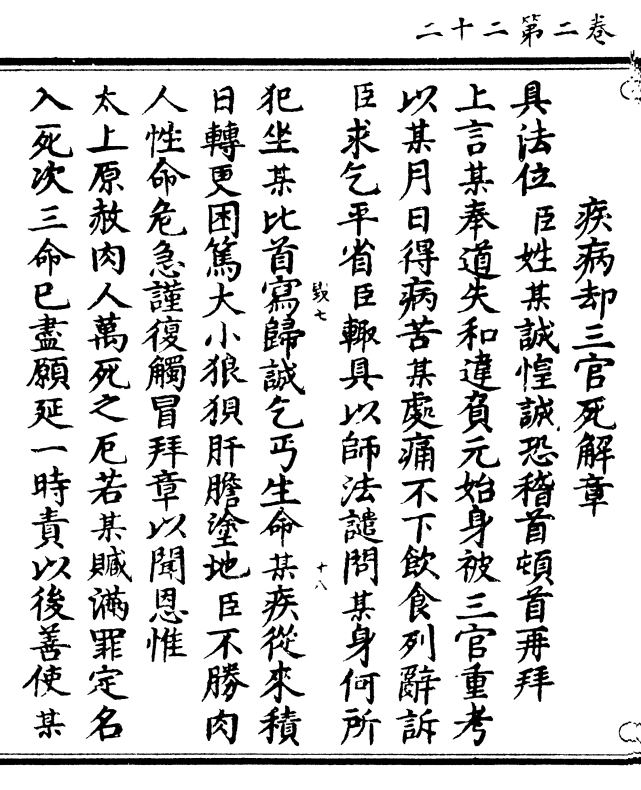 卷二第二十二
疾病却三官死解章
具法位臣姓某誠惶誠恐稽首頓首再拜
上言某奉道失和違負元始身被三官重考
以某月日得病苦某處痛不下飲食列辭訴
臣求乞平省臣輙具以師法譴問某身何所
戟七
十八
犯坐某比首寫歸誠乞丐生命某疾從來積
日轉更困篤大小狼狽肝膽塗地臣不勝肉
人性命危急謹復觸冒拜章以聞恩惟
太上原赦肉人萬死之厄若某贓滿罪定名
入死次三命已盡願延一時責以後善使某